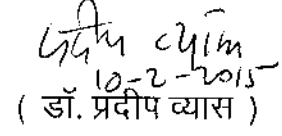 प्रदीप व्यास
10-2-2015
( डॉ. प्रदीप व्यास )